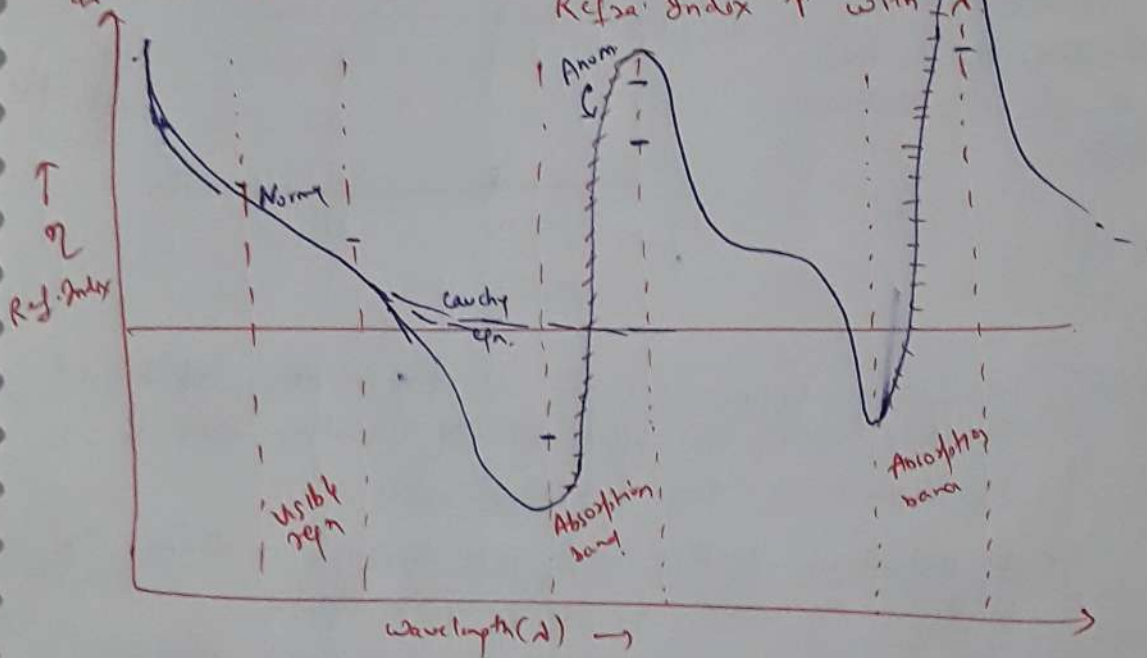 Refra. Index ↑ with λ
Anom
Normal
↑
η
Ref. Index
Cauchy
eqn.
Visible
regn
Absorption
band
Absorption
band
Wavelength(λ) →